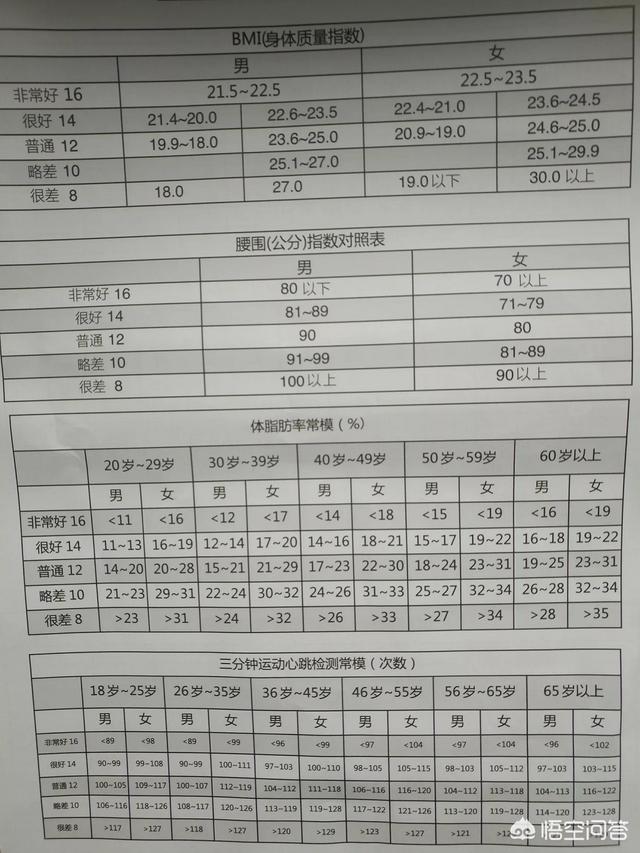 BMI(身体质量指数)
男 女
非常好 16 21.5~22.5 22.5~23.5
很好 14 21.4~20.0 22.6~23.5 22.4~21.0 23.6~24.5
普通 12 19.9~18.0 23.6~25.0 20.9~19.0 24.6~25.0
略差 10 25.1~27.0 25.1~29.9
很差 8 18.0 27.0 19.0 以下 30.0 以上
腰围(公分)指数对照表
男 女
非常好 16 80 以下 70 以上
很好 14 81~89 71~79
普通 12 90 80
略差 10 91~99 81~89
很差 8 100 以上 90 以上
体脂肪率常模(%)
20 岁~29岁 30 岁~39岁 40 岁~49岁 50 岁~59岁 60 岁以上
男 女 男 女 男 女 男 女 男 女
非常好 16 <11 <16 <12 <17 <14 <18 <15 <19 <16 <19
很好 14 11~13 16~19 12~14 17~20 14~16 18~21 15~17 19~22 16~18 19~22
普通 12 14~20 20~28 15~21 21~29 17~23 22~30 18~24 23~31 19~25 23~31
略差 10 21~23 29~31 22~24 30~32 24~26 31~33 25~27 32~34 26~28 32~34
很差 8 >23 >31 >24 >32 >26 >33 >27 >34 >28 >35
三分钟运动心跳检测常模(次数)
18 岁~25岁 26 岁~35岁 36 岁~45岁 46 岁~55岁 56 岁~65岁 65 岁以上
男 女 男 女 男 女 男 女 男 女 男 女
非常好 16 <89 <98 <89 <99 <96 <99 <97 <104 <97 <104 <96 <102
很好 14 90~99 99~108 90~99 100~111 97~103 100~110 98~105 105~115 98~105 105~112 97~103 103~115
普通 12 100~105 109~117 100~107 112~119 104~112 111~118 106~116 116~120 104~112 113~118 104~113 116~122
略差 10 106~116 118~126 108~117 120~126 113~119 119~128 117~122 121~126 113~120 119~128 114~120 123~128
很差 8 >117 >127 >118 >127 >120 >129 >123 >127 >121
悟空问答